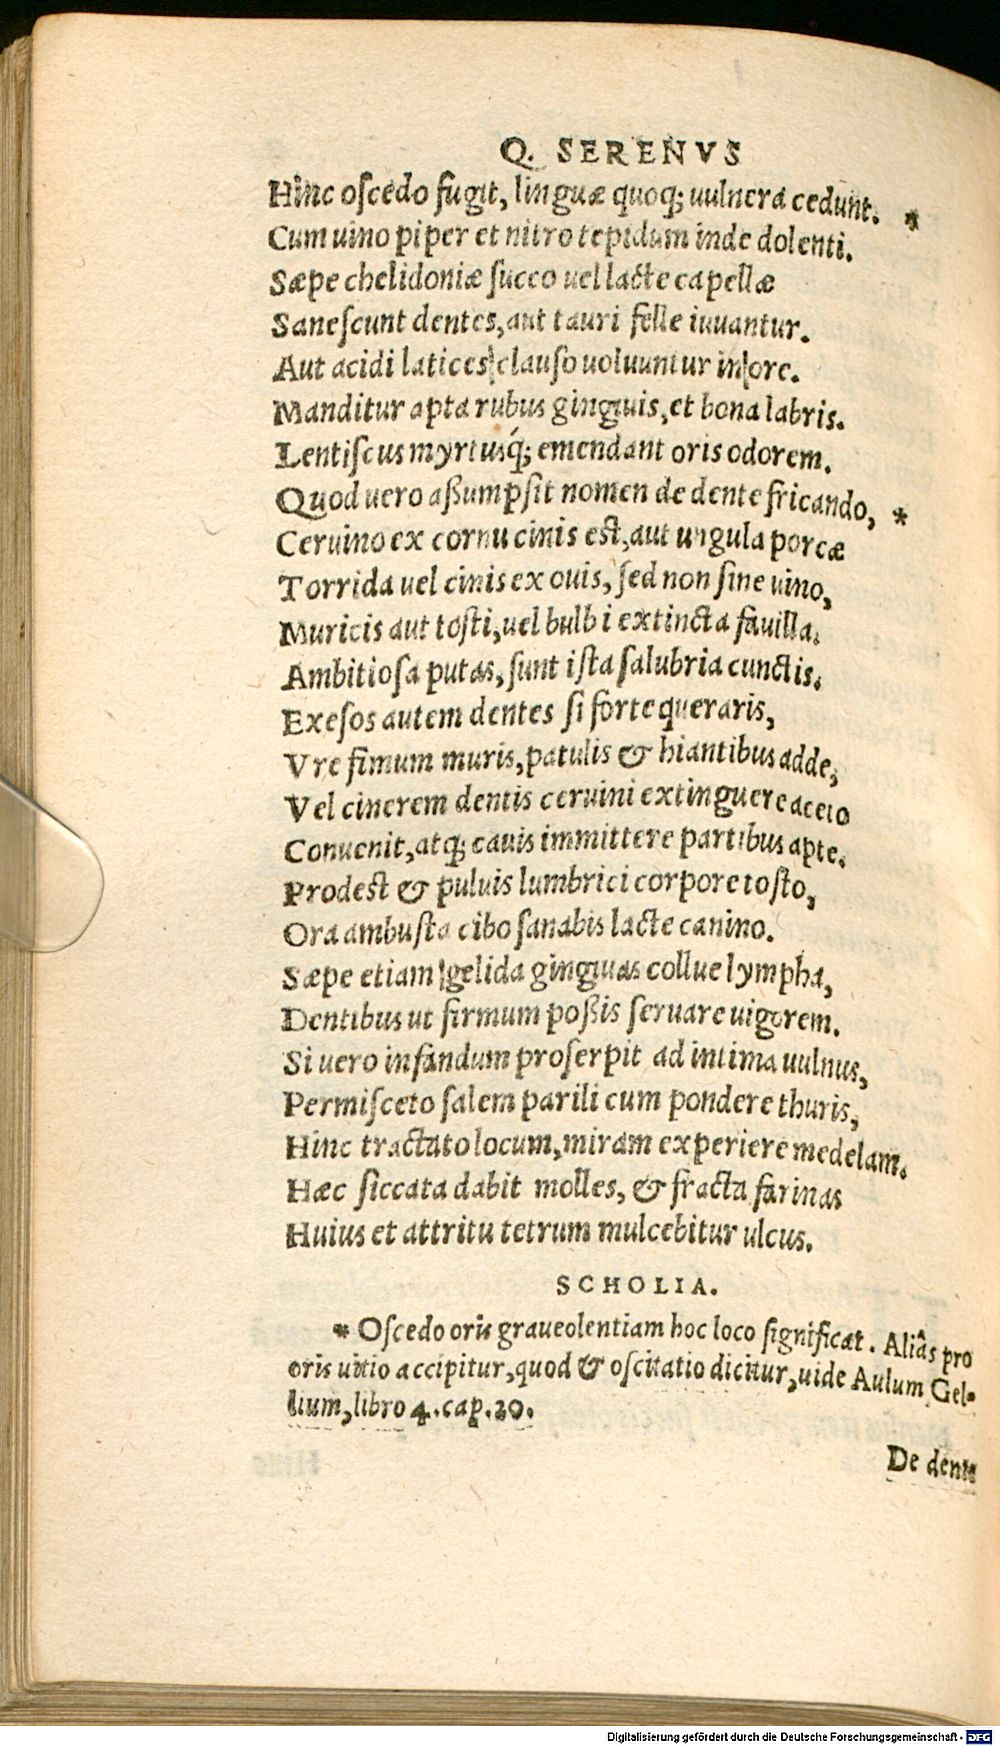 Q. SERENVS
Hinc oſcedo fugit, linguæ quoq; uulnera cedunt. *
Cum uino piper et nitro tepidum inde dolenti.
Sæpe chelidoniæ ſucco uel lacte capellæ
Saneſcunt dentes, aut tauri felle iuuantur.
Aut acidi latices clauſo uoluuntur in ore.
Manditur apta rubus gingiuis, et bona labris.
Lentiſcus myrtusq́; emendant oris odorem.
Quod uero aßumpſit nomen de dente fricando, *
Ceruino ex cornu cinis est, aut ungula porcæ
Torrida uel cinis ex ouis, ſed non ſine uino,
Muricis aut toſti, uel bulbi extincta fauilla.
Ambitioſa putas, ſunt iſta ſalubria cunctis.
Exeſos autem dentes ſi forte queraris,
Vre fimum muris, patulis & hiantibus adde,
Vel cinerem dentis ceruini extinguere aceto
Conuenit, atq; cauis immittere partibus apte.
Prodest & puluis lumbrici corpore toſto,
Ora ambuſta cibo ſanabis lacte canino.
Sæpe etiam gelida gingiuas collue lympha,
Dentibus ut firmum poßis ſeruare uigorem.
Si uero infandum proſerpit ad intima uulnus,
Permiſceto ſalem parili cum pondere thuris,
Hinc tractato locum, miram experiere medelam.
Hæc ſiccata dabit molles, & fracta farinas
Huius et attritu tetrum mulcebitur ulcus.
SCHOLIA.
* Oſcedo oris graueolentiam hoc loco ſignificat. Aliâs pro
oris uitio accipitur, quod & oſcitatio dicitur, uide Aulum Gel-
lium, libro 4. cap. 20.
De dente
Digitalisierung gefördert durch die Deutsche Forschungsgemeinschaft - DFG